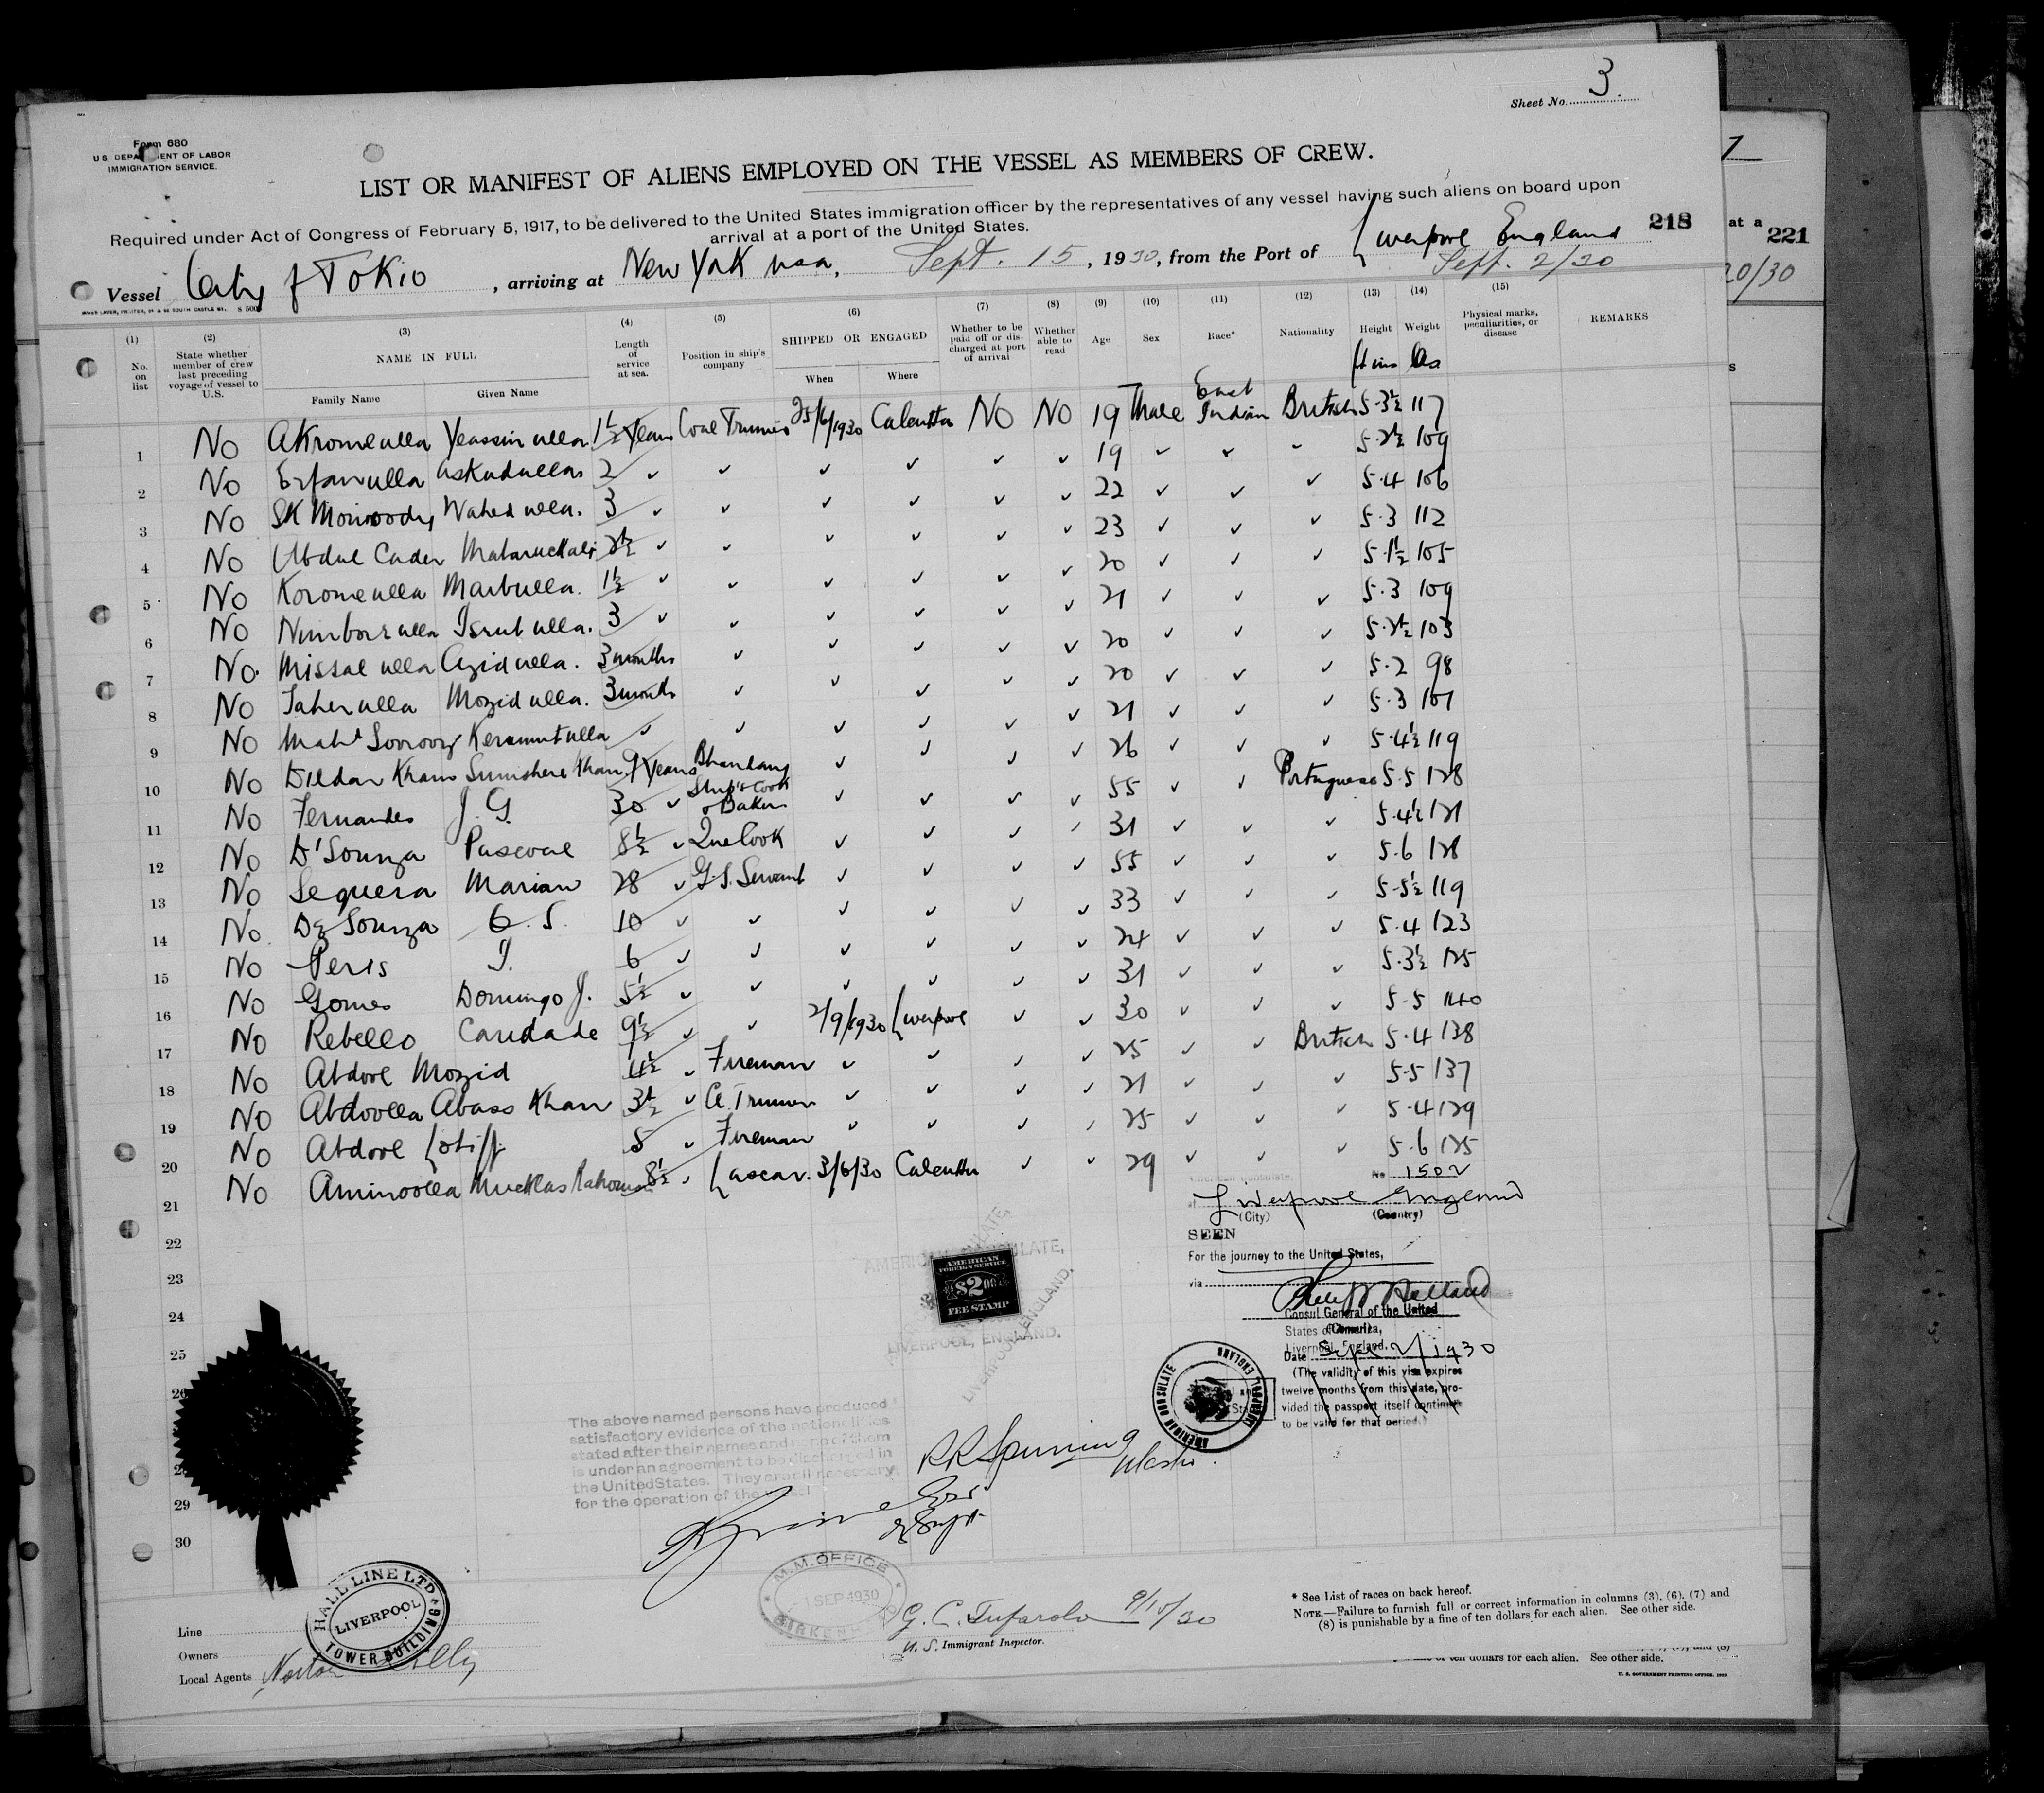 Sheet No. 3.
Form 680
U.S. DEPARTMENT OF LABOR
IMMIGRATION SERVICE.
LIST OR MANIFEST OF ALIENS EMPLOYED ON THE VESSEL AS MEMBERS OF CREW.
Required under Act of Congress of February 5, 1917, to be delivered to the United States immigration officer by the representatives of any vessel having such aliens on board upon
arrival at a port of the United States.
218
at a 221
20/30
Vessel City of Tokio, arriving at New York usa, Sept. 15, 1930, from the Port of Liverpool England
Sept. 2/30
(1) (2) (3) (4) (5) (6) (7) (8) (9) (10) (11) (12) (13) (14) (15)
No. on list
State whether member of crew last preceding voyage of vessel to U.S.
NAME IN FULL
Family Name Given Name
Length of service at sea.
Position in ship's company
SHIPPED OR ENGAGED
When Where
Whether to be paid off or discharged at port of arrival
Whether able to read
Age Sex Race* Nationality Height Weight
Physical marks, peculiarities, or disease
REMARKS
1 No Akromeulla Yeassin ulla 1½ Years Coal Trimmer 25/6/1930 Calcutta No No 19 Male East Indian British 5.3½ 117
2 No Erfanulla Askudulla 2 ✓ ✓ ✓ ✓ ✓ ✓ 19 ✓ ✓ ✓ 5.2½ 109
3 No SK Monoody Wahed ulla. 3 ✓ ✓ ✓ ✓ ✓ ✓ 22 ✓ ✓ ✓ 5.4 106
4 No Abdul Cader Mabaruckali 2½ ✓ ✓ ✓ ✓ ✓ ✓ 23 ✓ ✓ ✓ 5.3 112
5 No Koromeulla Marbulla. 1½ ✓ ✓ ✓ ✓ ✓ ✓ 20 ✓ ✓ ✓ 5.1½ 105
6 No Nimborulla Isrubulla. 3 ✓ ✓ ✓ ✓ ✓ ✓ 21 ✓ ✓ ✓ 5.3 109
7 No. Missal ulla Azid ulla. 3 months ✓ ✓ ✓ ✓ ✓ 20 ✓ ✓ ✓ 5.2½ 103
8 No Taherulla Mozid ulla. 3 months ✓ ✓ ✓ ✓ ✓ 20 ✓ ✓ ✓ 5.2 98
9 No Mahd Soorooz Keramutulla ✓ ✓ ✓ ✓ ✓ ✓ 21 ✓ ✓ ✓ 5.3 107
10 No Dildar Khan Sumshere Khan 9 Years Bhandary ✓ ✓ ✓ ✓ 26 ✓ ✓ ✓ 5.4½ 119
11 No Fernandes J. G. 30 ✓ Ship's Cook & Baker ✓ ✓ ✓ ✓ 55 ✓ ✓ Portuguese 5.5 128
12 No D'Souza Pascoal 8½ ✓ 2nd Cook ✓ ✓ ✓ ✓ 31 ✓ ✓ ✓ 5.4½ 121
13 No Sequera Marian 28 ✓ G.S. Servant ✓ ✓ ✓ ✓ 55 ✓ ✓ ✓ 5.6 128
14 No De Souza C. S. 10 ✓ ✓ ✓ ✓ ✓ ✓ 33 ✓ ✓ ✓ 5.5½ 119
15 No Peris I. 6 ✓ ✓ ✓ ✓ ✓ ✓ 24 ✓ ✓ ✓ 5.4 123
16 No Gomes Domingo J. 5½ ✓ ✓ ✓ ✓ ✓ ✓ 31 ✓ ✓ ✓ 5.3½ 125
17 No Rebello Caridade 9½ ✓ ✓ 2/9/1930 Liverpool ✓ ✓ 30 ✓ ✓ ✓ 5.5 140
18 No Abdool Mozid 4½ ✓ Fireman ✓ ✓ ✓ ✓ 25 ✓ ✓ British 5.4 138
19 No Abdoolla Abass Khan 3½ ✓ C. Trimmer ✓ ✓ ✓ ✓ 21 ✓ ✓ ✓ 5.5 137
20 No Abdool Lotiff 5 ✓ Fireman ✓ ✓ ✓ ✓ 25 ✓ ✓ ✓ 5.4 129
21 No Aminoolla Mucklas Rahoman 8½ ✓ Lascar. 3/6/30 Calcutta ✓ ✓ 29 ✓ ✓ ✓ 5.6 125
22
23
24
25
26
29
30
American Consulate No 1502
at Liverpool England
(City) (Country)
SEEN
For the journey to the United States,
via
Consul General of the United
States of America,
(Consul)
Liverpool, England.
Date Sept 2/1930
(The validity of this visa expires
twelve months from this date, pro-
vided the passport itself continues
to be valid for that period.)
AMERICAN CONSULATE,
LIVERPOOL, ENGLAND.
AMERICAN
FOREIGN SERVICE
$2.00
FEE STAMP
AMERICAN CONSULATE LIVERPOOL ENGLAND
The above named persons have produced
satisfactory evidence of the nationalities
stated after their names and none of them
is under an agreement to be discharged in
the United States. They are all necessary
for the operation of the vessel
R R Spurning
Master.
M.M. OFFICE
1 SEP 1930
BIRKENHEAD
G. C. Tufarolo 9/15/30
U. S. Immigrant Inspector.
HALL LINE LTD
LIVERPOOL
TOWER BUILDING
Line
Owners
Local Agents Norton Lilly
* See List of races on back hereof.
NOTE.—Failure to furnish full or correct information in columns (3), (6), (7) and
(8) is punishable by a fine of ten dollars for each alien. See other side.
of ten dollars for each alien. See other side.
U. S. GOVERNMENT PRINTING OFFICE